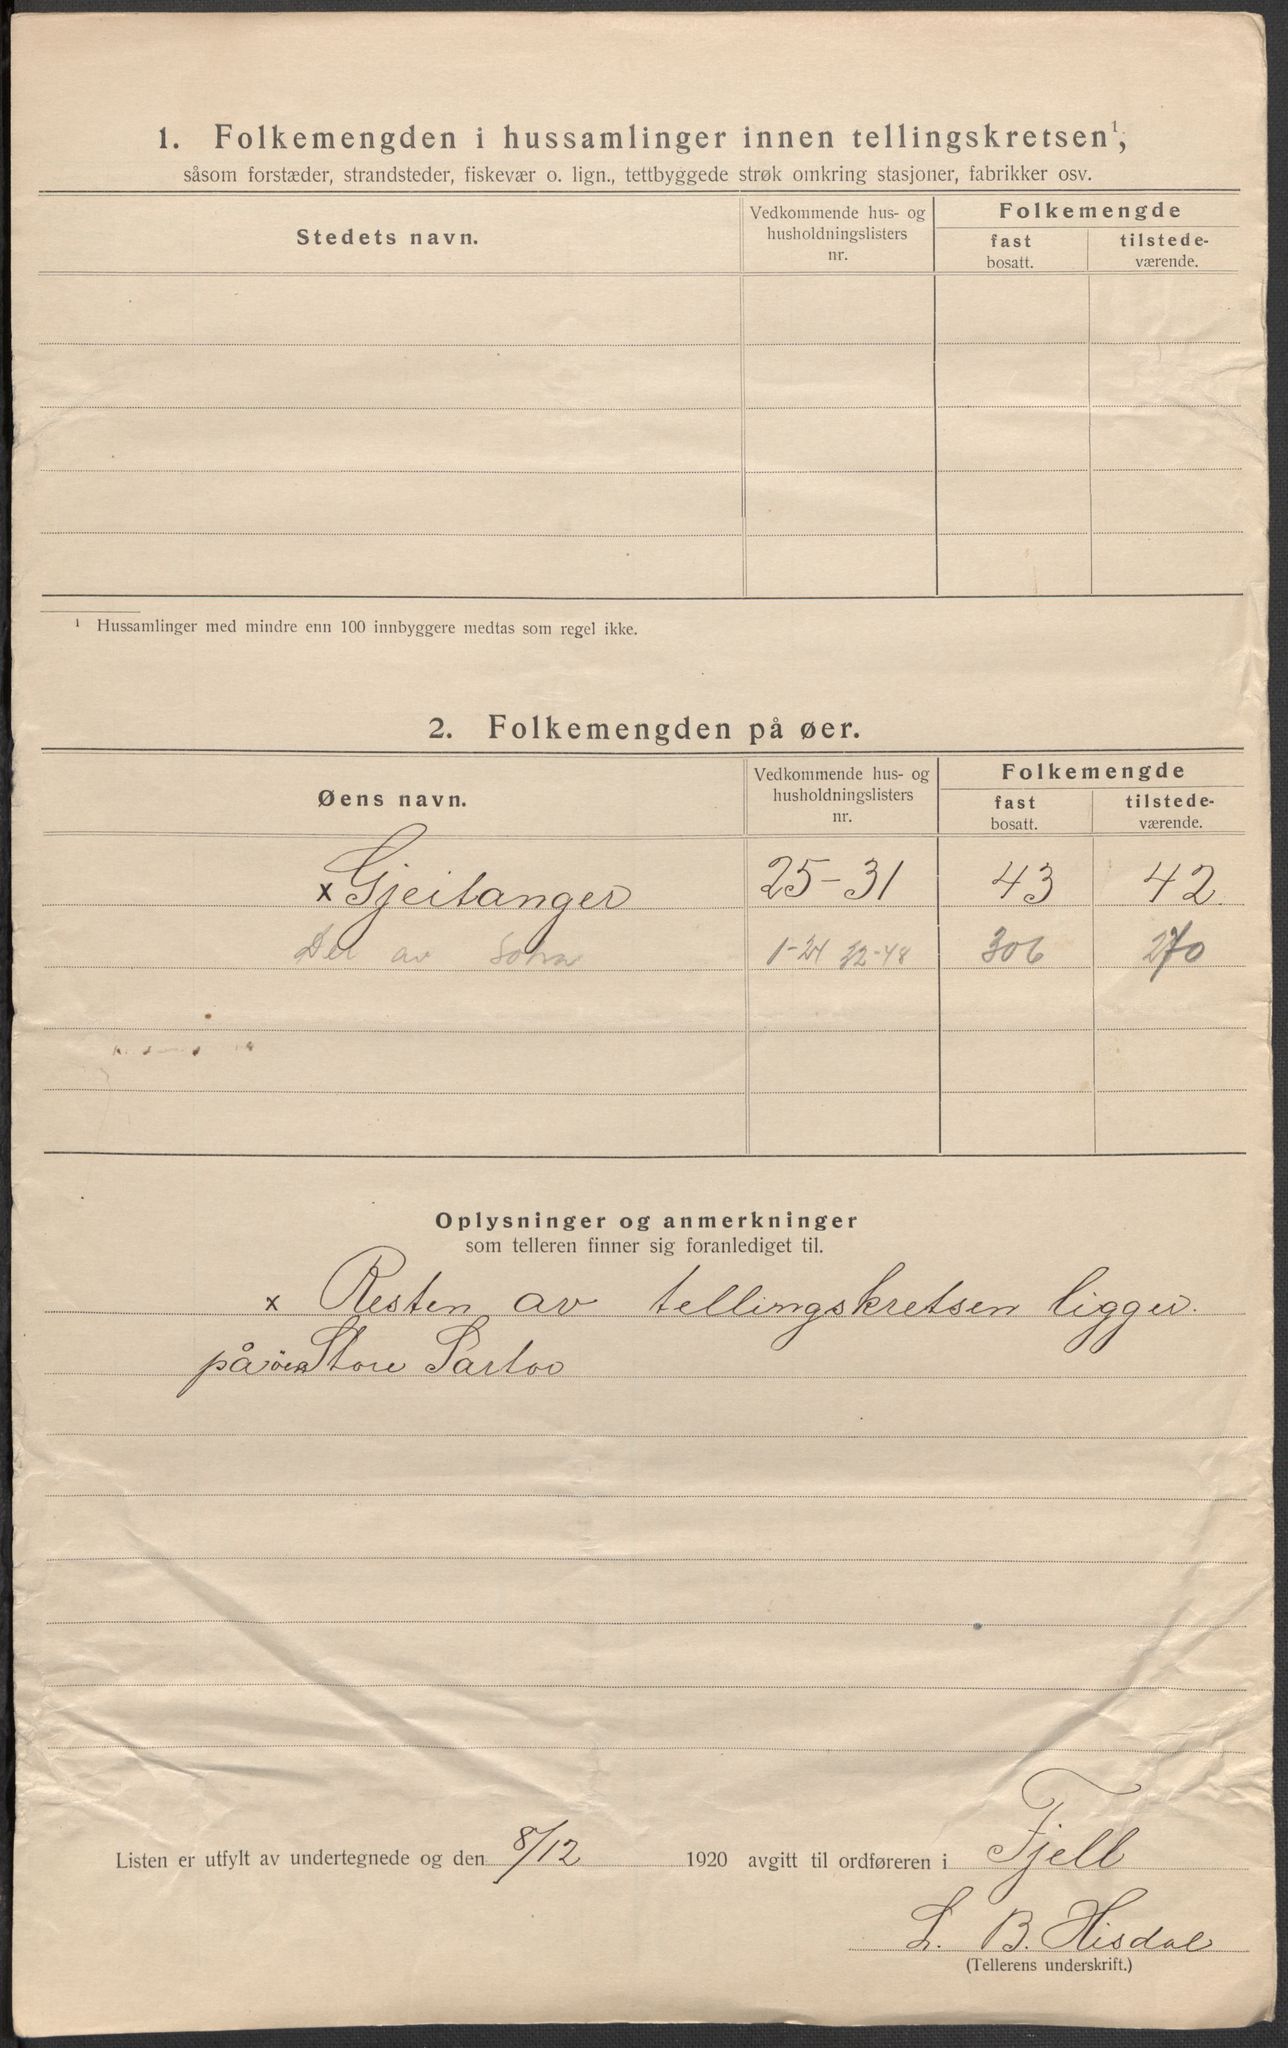 1. Folkemengden i hussamlinger innen tellingskretsen¹,
såsom forstæder, strandsteder, fiskevær o. lign., tettbyggede strøk omkring stasjoner, fabrikker osv.
Stedets navn.
Vedkommende hus- og husholdningslisters nr.
Folkemengde
fast bosatt.
tilstede- værende.
¹ Hussamlinger med mindre enn 100 innbyggere medtas som regel ikke.
2. Folkemengden på øer.
Øens navn.
Vedkommende hus- og husholdningslisters nr.
Folkemengde
fast bosatt.
tilstede- værende.
x Gjeitanger 25-31 43 42
Del av Sotra 1-24 32-48 306 270
Oplysninger og anmerkninger
som telleren finner sig foranlediget til.
x Resten av tellingskretsen ligger
på øen Store Sartor
Listen er utfylt av undertegnede og den 8/12 1920 avgitt til ordføreren i Fjell
L. B. Hisdal
(Tellerens underskrift.)